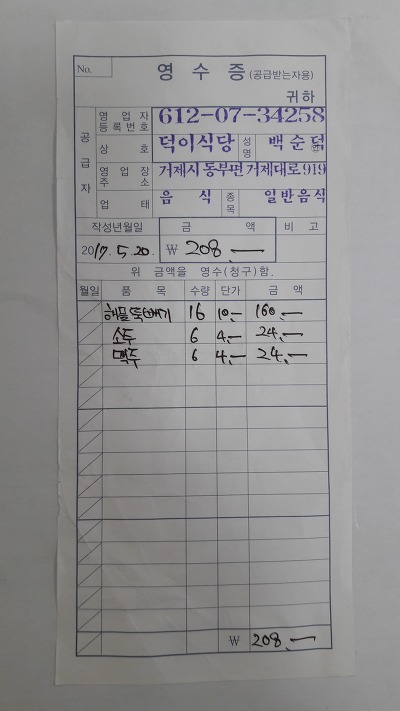 No.
영 수 증 (공급받는자용)
귀하
공급자
영업자 등록번호 612-07-34258
상 호 덕이식당 성명 백순덤 ㊞
영업장 주소 거제시 동부면 거제대로 919
업 태 음 식 종목 일반음식
작성년월일 금 액 비 고
2017. 5. 20. ₩ 208.—
위 금액을 영수(청구)함.
월일 품 목 수량 단가 금 액
해물뚝배기 16 10.— 160.—
소주 6 4.— 24.—
맥주 6 4.— 24.—
₩ 208.—